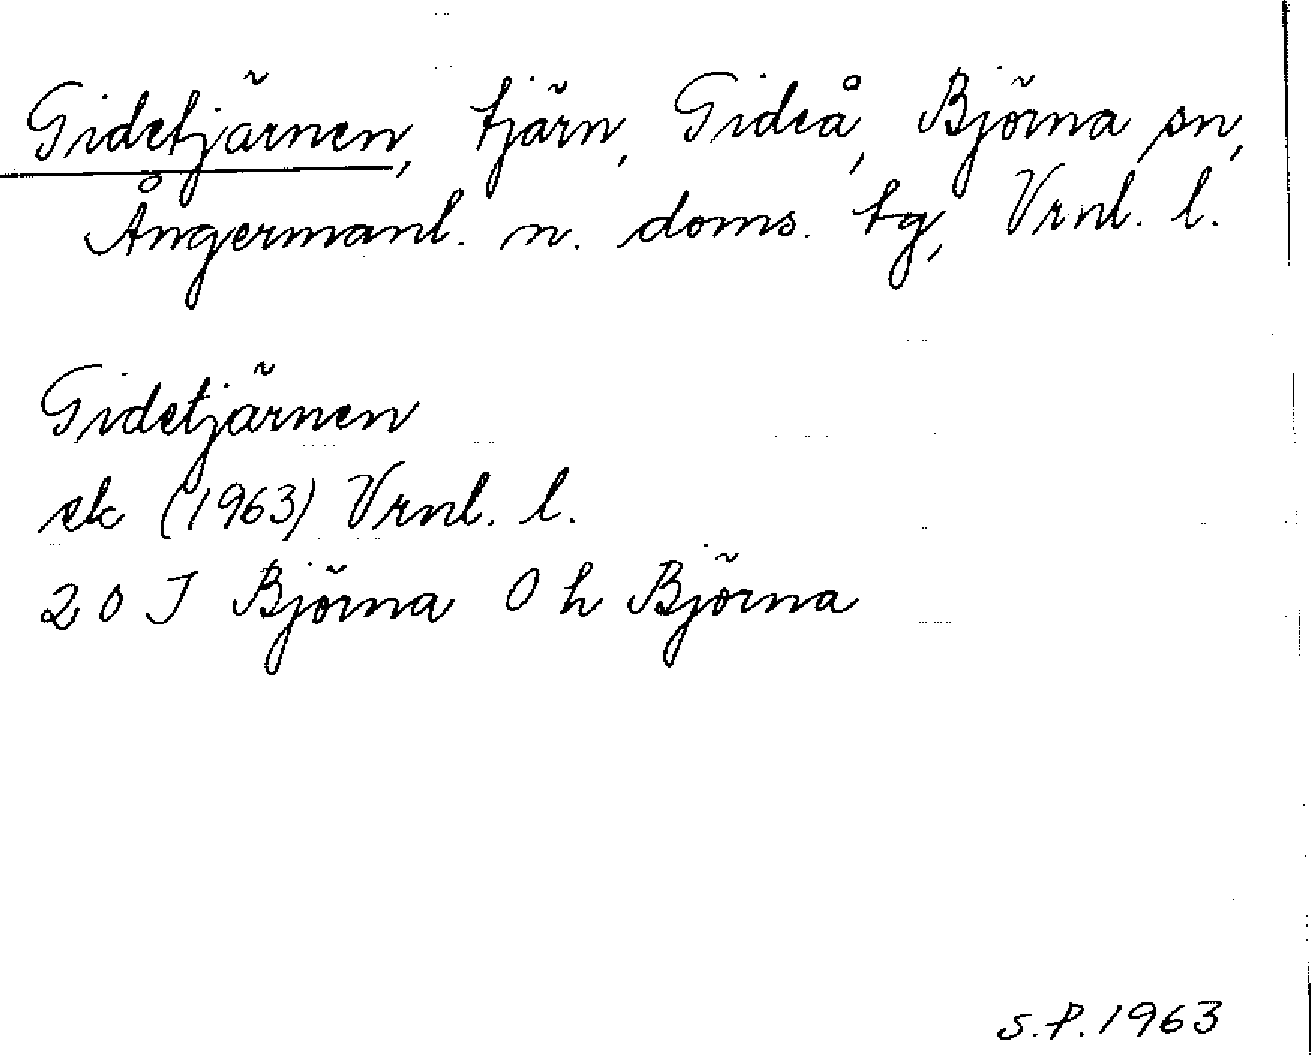 Gidetjärnen, tjärn, Gideå, Björna sn,
Ångermanl. n. doms. tg, Vrnl. l.
Gidetjärnen
ek (1963) Vrnl. l.
20 J Björna 0 h Björna
S.P. 1963